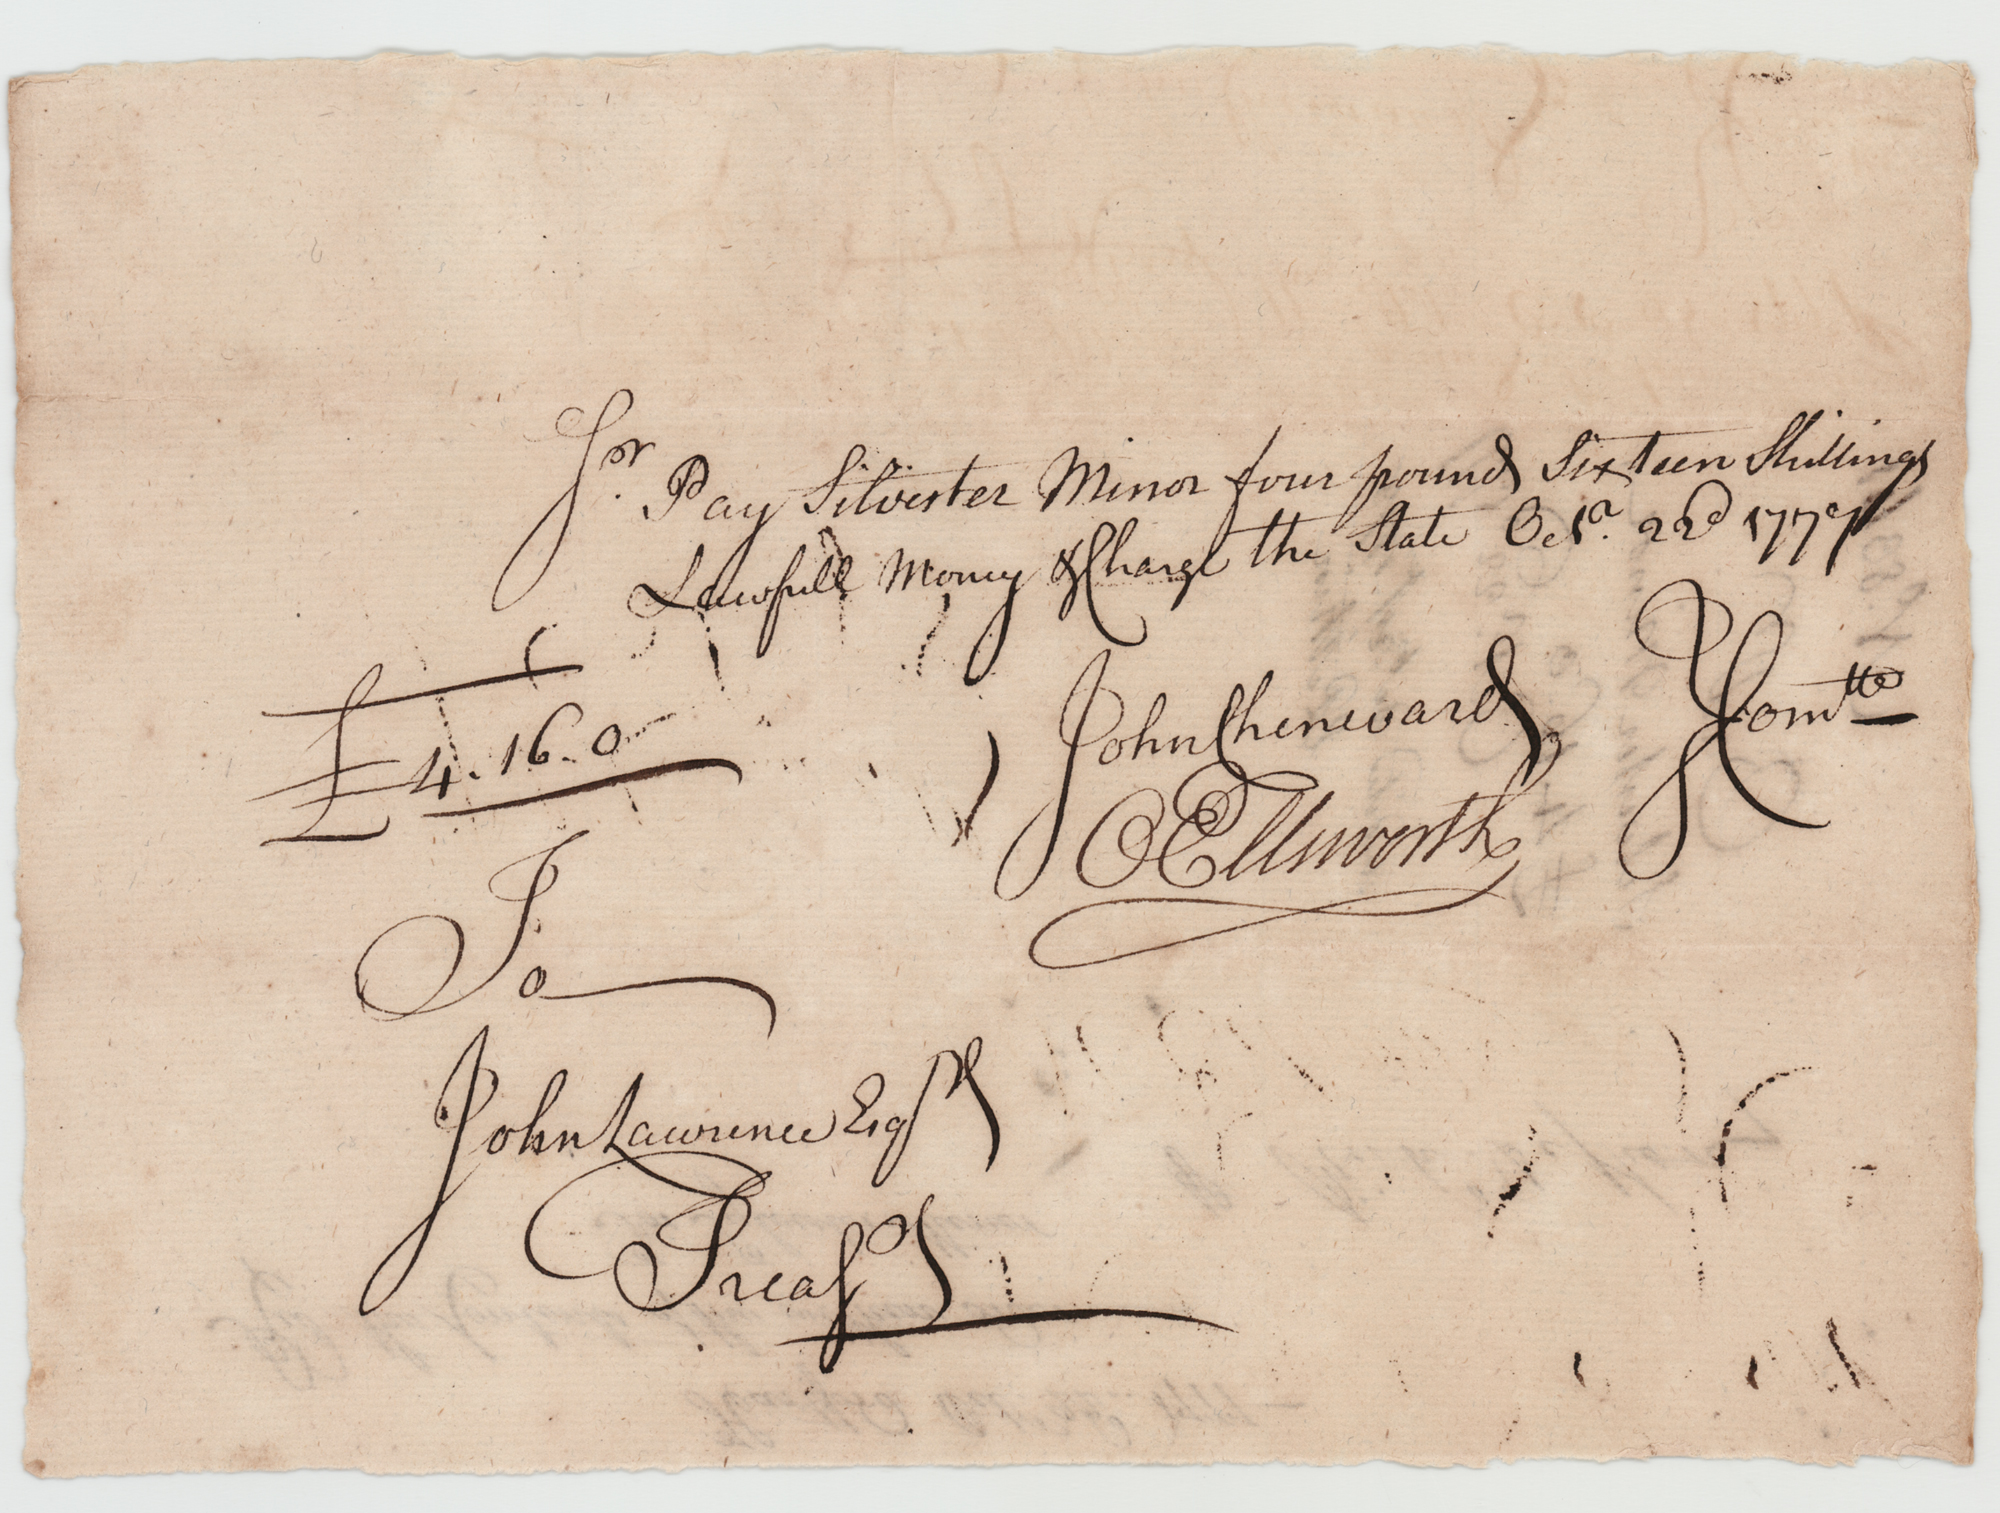 Sr. Pay Silvester Minor four pound Sixteen Shillings
Lawfull Money & Charge the State Octr. 22d 1777
£4.16.0
John Chenevard
OEllsworth
Comtte
To
John Lawrence Esqr
Treasr